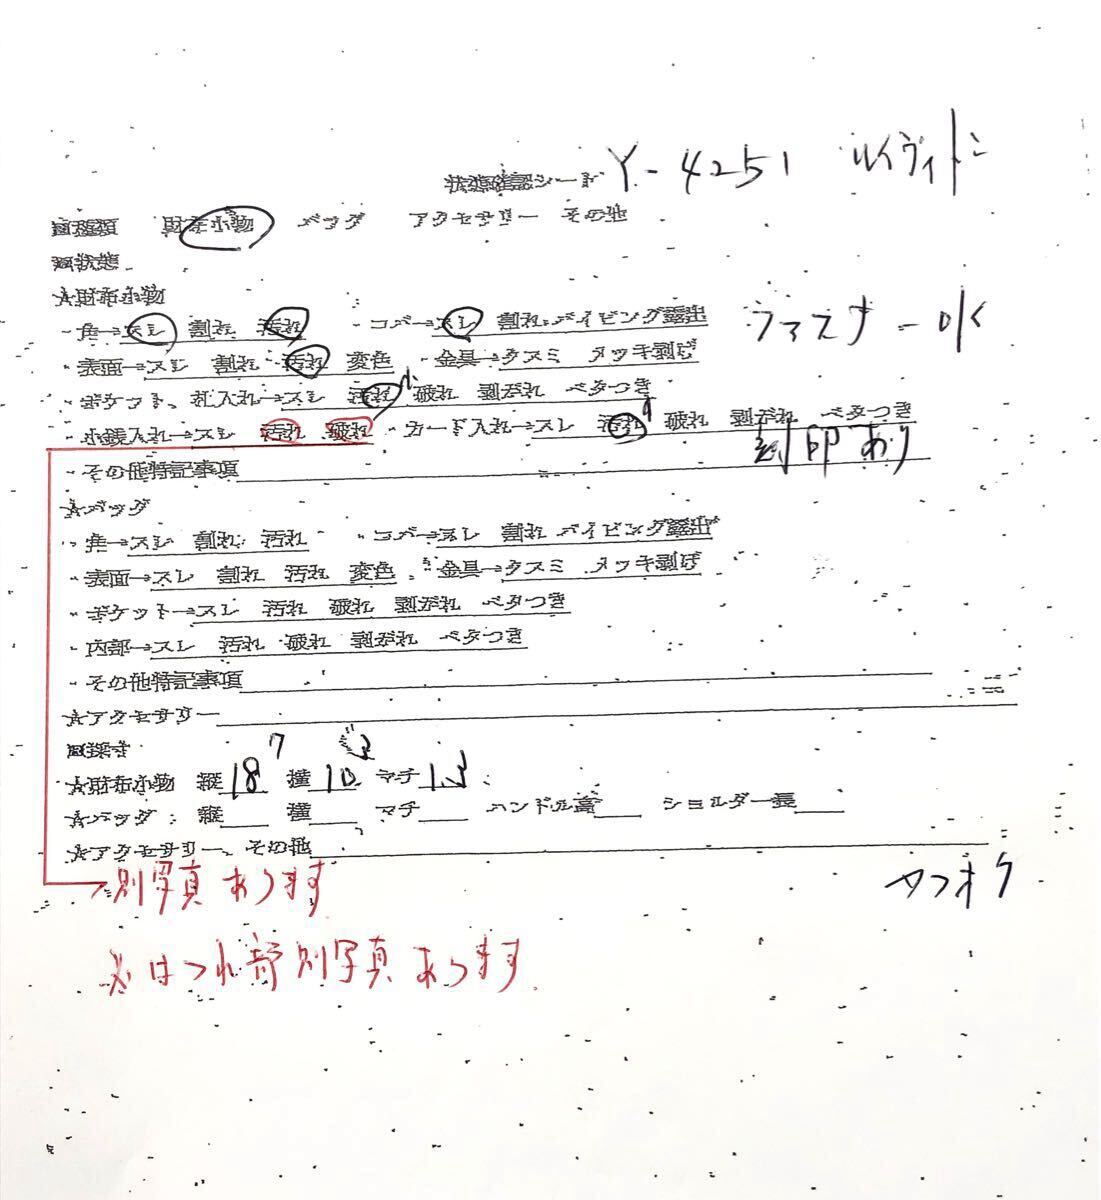 状態確認シート Y-4251 ルイヴィトン
□種類 財布小物 バッグ アクセサリー その他
□状態
☆財布小物
・角→スレ 割れ 汚れ ・コバ→スレ 割れ パイピング露出 ファスナーOK
・表面→スレ 割れ 汚れ 変色 ・金具→クスミ メッキ剥げ
・ポケット、札入れ→スレ 汚れ 破れ 剥がれ ベタつき
小
・小銭入れ→スレ 汚れ 破れ ・カード入れ→スレ 汚れ 破れ 剥がれ ベタつき
・その他特記事項 刻印あり
☆バッグ
・角→スレ 割れ 汚れ ・コバ→スレ 割れ パイピング露出
・表面→スレ 割れ 汚れ 変色 ・金具→クスミ メッキ剥げ
・ポケット→スレ 汚れ 破れ 剥がれ ベタつき
・内部→スレ 汚れ 破れ 剥がれ ベタつき
・その他特記事項
☆アクセサリー
□採寸
☆財布小物 縦18 横10 マチ1.5
☆バッグ: 縦 横 マチ ハンドル高 ショルダー長
☆アクセサリー、その他
別写真あります ヤフオク
※ほつれ部別写真あります